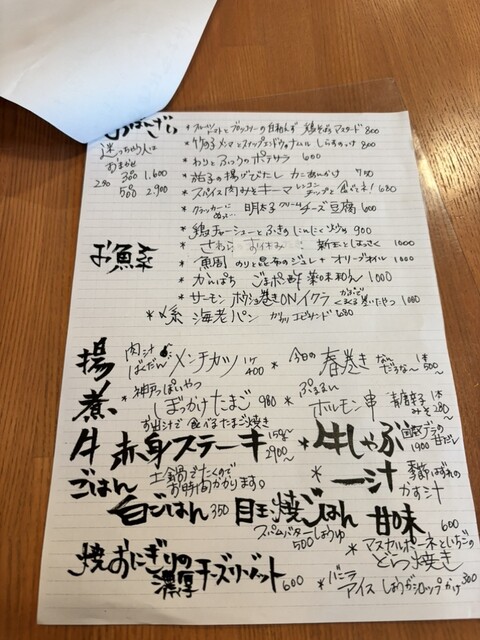 おばんざい
迷っちゃう人は
おまかせ
2品 3品 1.600
5品 2.900
* フルーツトマトとブロッコリーの白和え 鶏そぼろマスタード 800
* 竹の子メンマとスナップエンドウのナムル しらすのっけ 800
* わりとふつうのポテサラ 600
* 茄子の揚げびたし カニあんかけ 750
* スパイス肉みそキーマ レンコンチップと食べてネ! 680
* クラッカーにぬって… 明太子クリームチーズ豆腐 600
* 鶏チャーシューとふきのにんにく炒め 900
お魚系
* さわら お休み 新玉とはっさく 1000
* 魚周 のりと昆布のジュレ + オリーブオイル 1000
* かんぱち ごまポン酢 薬味和え 1000
* サーモン 巻きONイクラ 1000
* 〆系 海老パン カリッエビサンド 680
揚
肉汁ばくだん メンチカツ 1ケ 400
* 今日の春巻き なんだろな〜 1本 500〜
煮
* 神戸っぽいやつ
ぼっかけたまご 980
お出汁で食べるたまご焼き
* ホルモン串 青唐辛子みそ 1本 280〜
牛 赤身ステーキ 150g〜 2900〜
* 牛しゃぶ 1900
ごはん 土鍋でたくので
お時間かかります。
* 一汁 季節はずれのかす汁
白ごはん 350 目玉焼ごはん
スパムバターしょうゆ 500
甘味 600
* マスカルポーネといちごのどら焼き
焼おにぎりの濃厚チーズリゾット 600
* バニラアイス しょうがシロップかけ 300